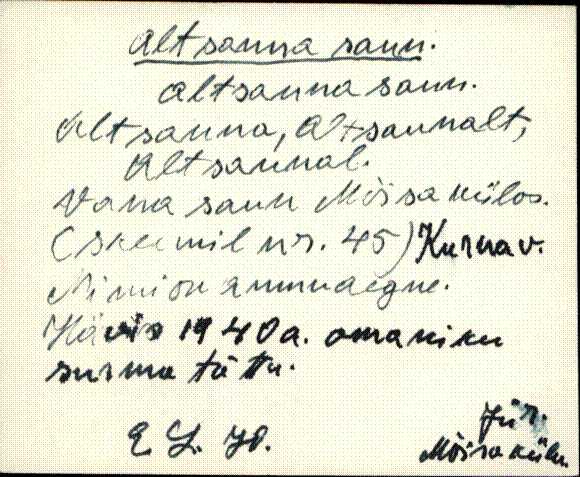 Altsanna saun.
Altsanna saun.
Altsanna, Altsaunalt,
Altsaunal.
Vana saun Mõisakülas.
(skeemil nr. 45) Kurna v.
Nimi on ammuaegne.
Hävis 1940 a. omaniku
surma tõttu.
Jür.
Mõisaküla.